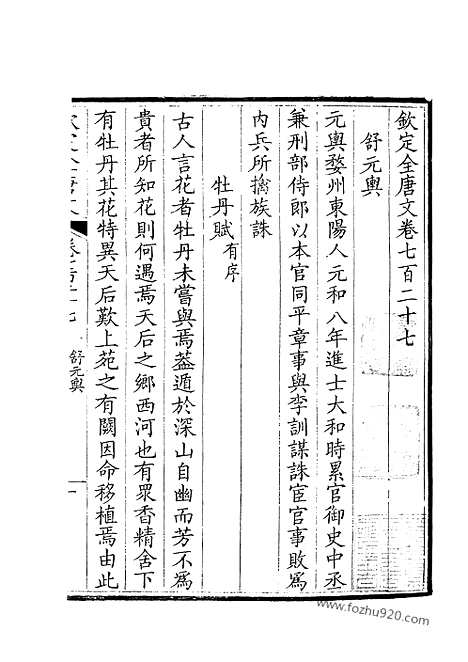 欽定全唐文卷七百二十七
舒元輿
元輿婺州東陽人元和八年進士大和時累官御史中丞
兼刑部侍郎以本官同平章事與李訓謀誅宦官事敗為
内兵所擒族誅
牡丹賦有序
古人言花者牡丹未嘗與焉葢遁於深山自幽而芳不為
貴者所知花則何遇焉天后之鄉西河也有眾香精舍下
有牡丹其花特異天后歎上苑之有闕因命移植焉由此
舒元輿
一
www.fozhu920.com